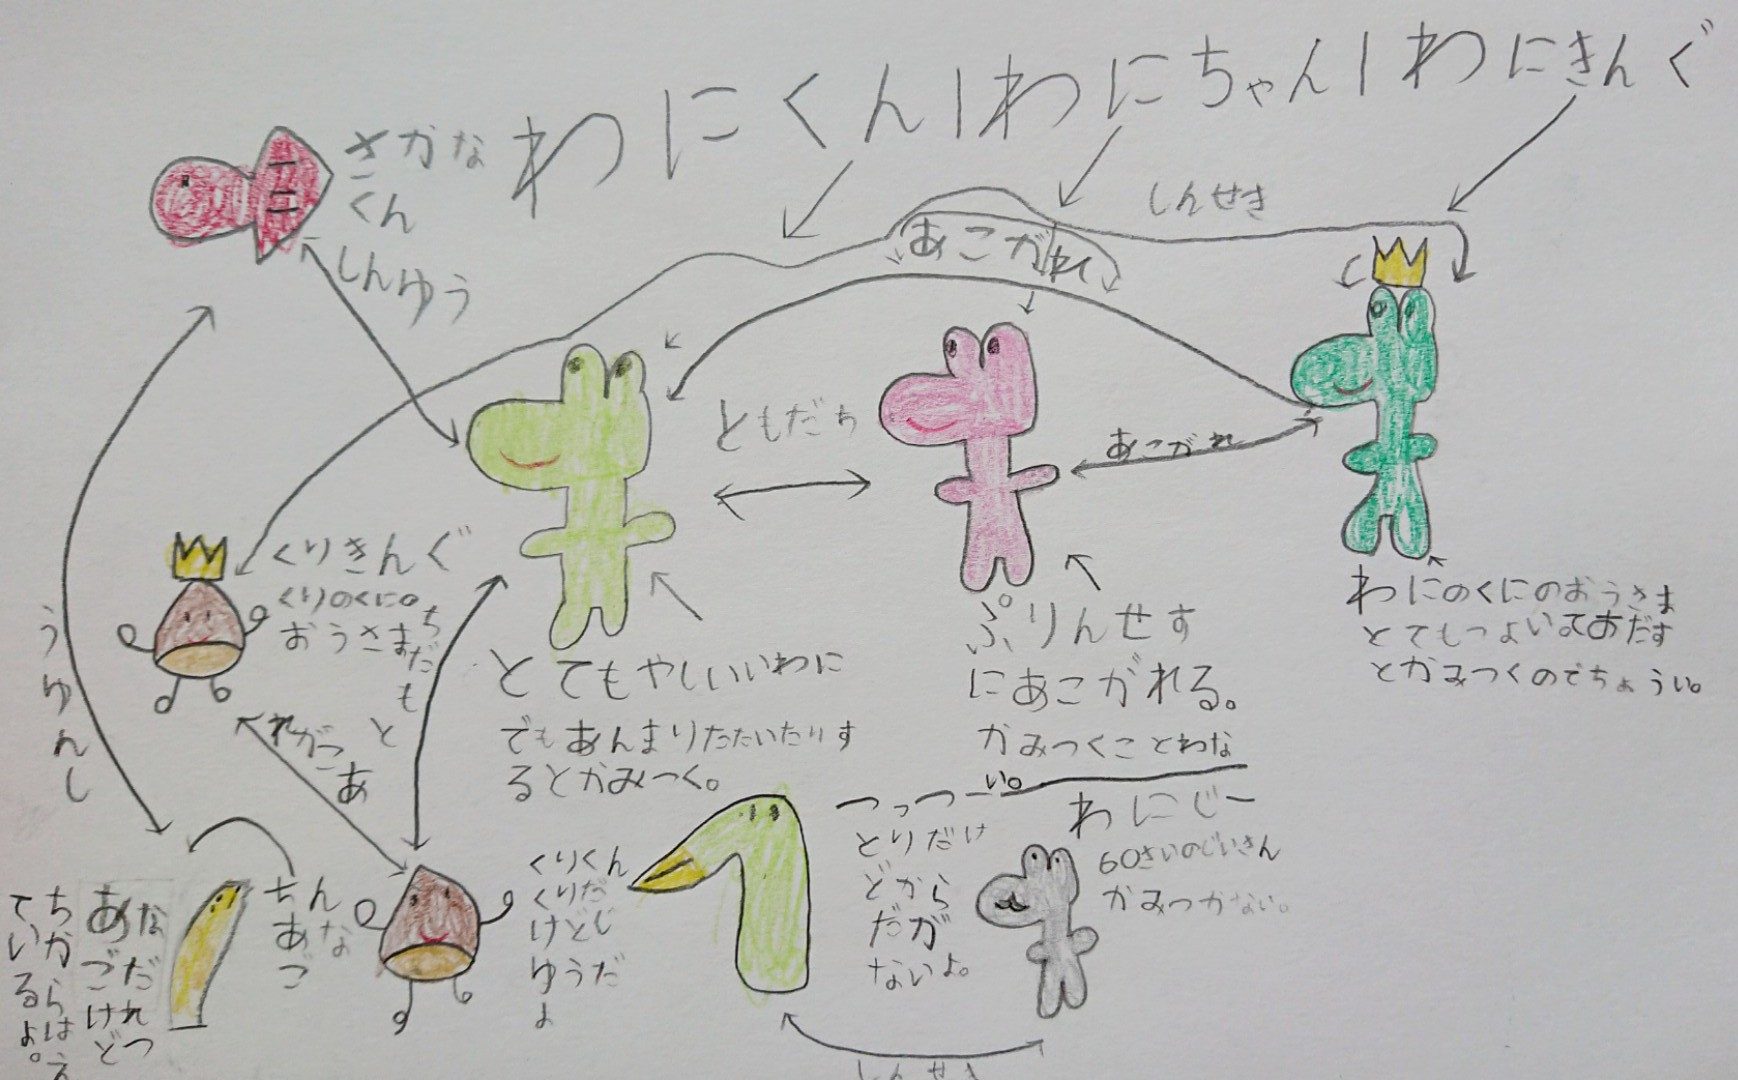 わにくん|わにちゃん|わにきんぐ
さかな
くん
しんゆう
しんせき
あこがれ
ともだち
あこがれ
くりきんぐ
くりのくに。
おうさま
ともだち
あこがれ
しんゆう
とてもやしいいわに
でもあんまりたたいたりす
るとかみつく。
ぷりんせす
にあこがれる。
かみつくことわな
い。
わにのくにのおうさま
とてもつよいいてあだす
とかみつくのでちょうい。
ちん
あなご
あなごだけど
ちからはえ
ているよ。
くりくん
くりだ
けどじ
ゆうだ
よ
つっつー
とりだけ
どから
だが
ないよ。
わにじー
60さいのじいさん
かみつかない。
しんせき